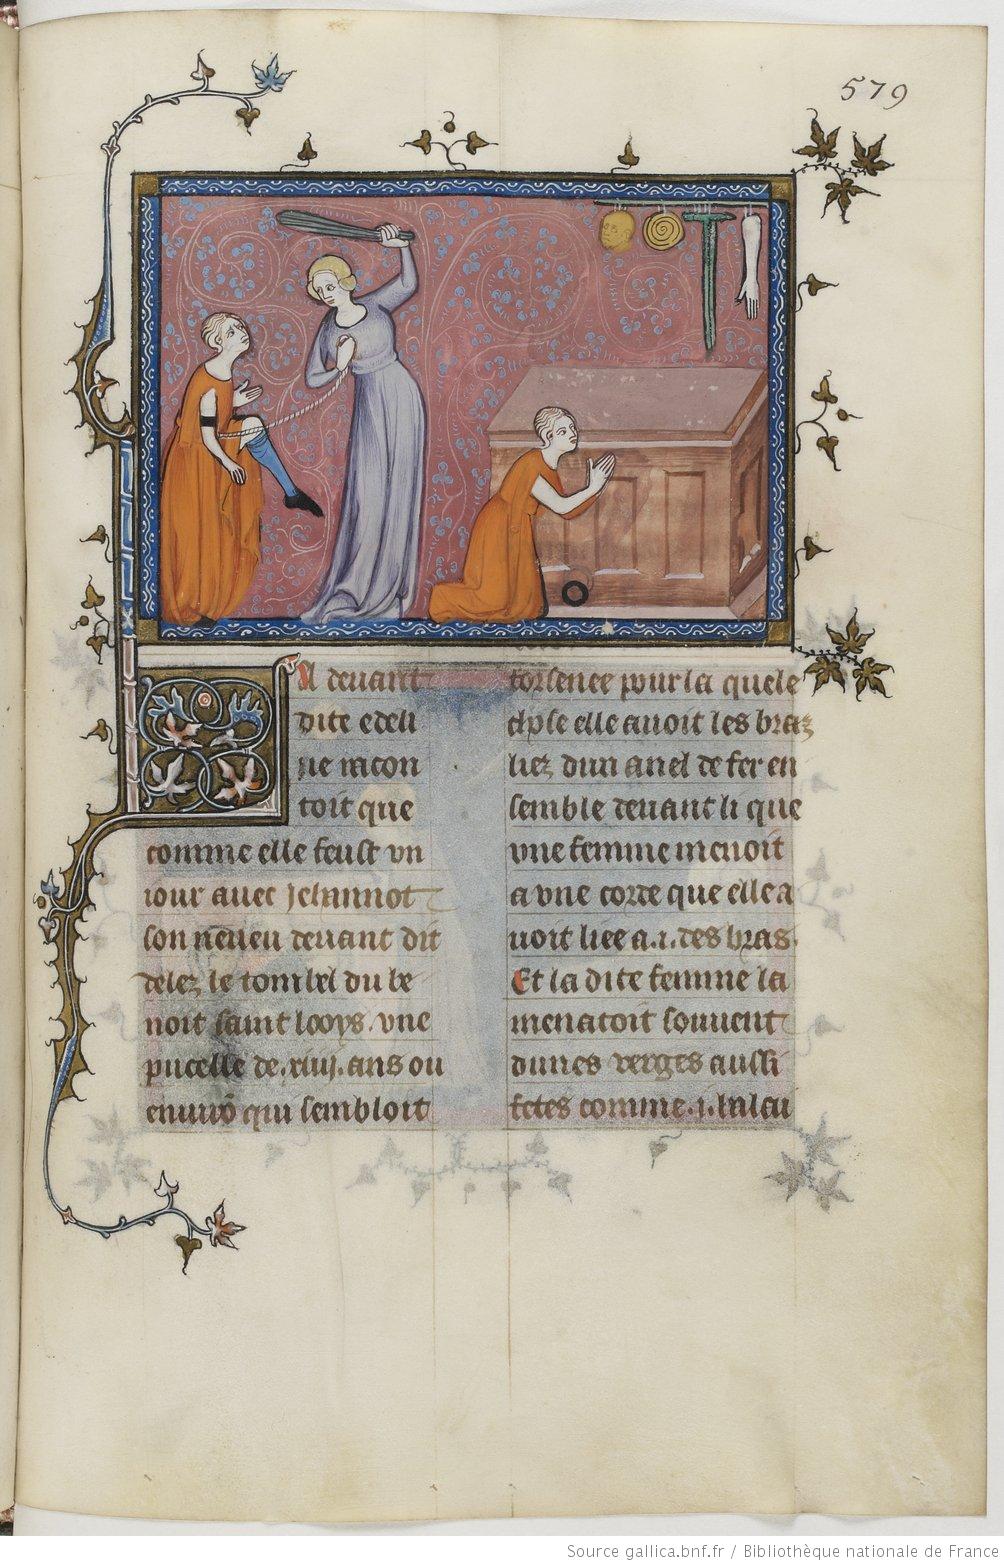 579
A deuant
dite edeli
ne racon
toit que
comme elle feust vn
iour auec Jehannot
son neueu deuant dit
delez le tombel du be
noit saint looys. vne
pucelle de .xiiij. ans ou
enuirõ qui sembloit
forsenee pour la quele
chose elle auoit les braz
liez dun anel de fer en
semble deuant li que
vne femme menoit
a vne corde que elle a
uoit liee a .i. des bras.
Et la dite femme la
menacoit souuent
dunes verges aussi
fetes comme .i. balai
Source gallica.bnf.fr / Bibliothèque nationale de France